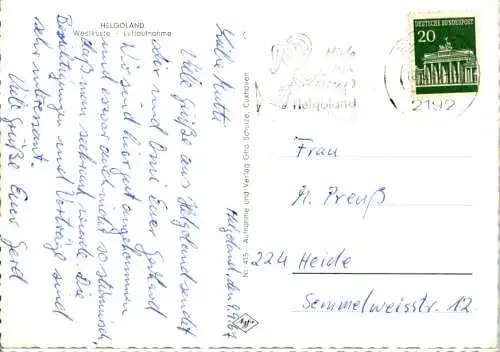 HELGOLAND
Westküste - Luftaufnahme
Helgoland, den 9.9.67
Liebe Mutti
Viele Grüße aus Helgoland sendet
dir und Omi Euer Gerd.
Wir sind hier gut angekommen
und es war auch nicht so stürmisch,
daß man seekrank wurde. Die
Besichtigungen und Vorträge sind
sehr interessant.
Viele Grüße Euer Gerd
Nr. 415 Aufnahme und Verlag Otto Schulze, Cuxhaven
Agfa
DEUTSCHE BUNDESPOST
20
Helgoland
2192
Frau
M. Preuß
224 Heide
Semmelweisstr. 12